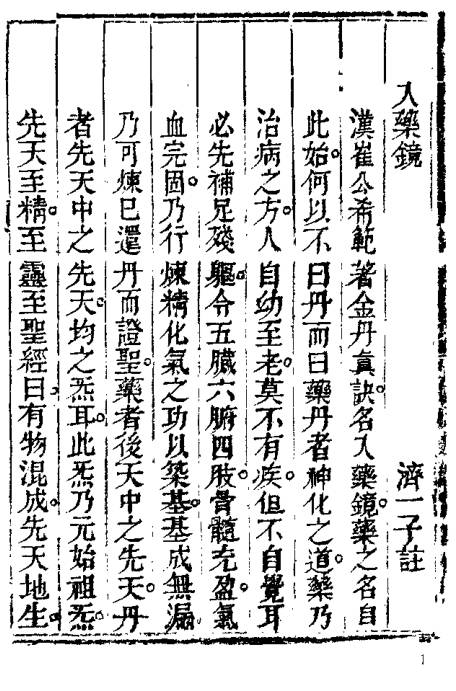 入藥鏡
濟一子註
漢崔公希範著金丹真訣。名入藥鏡。藥之名自
此始。何以不曰丹而曰藥。丹者神化之道。藥乃
治病之方。人自幼至老。莫不有疾。但不自覺耳
必先補足殘軀。令五臟六腑四肢骨髓充盈。氣
血完固。乃行煉精化氣之功以築基。基成無漏
乃可煉已還丹而證聖。藥者後天中之先天。丹
者先天中之先天。均之炁耳。此炁乃元始祖炁。
先天至精。至靈至聖。經曰。有物混成。先天地生。
1